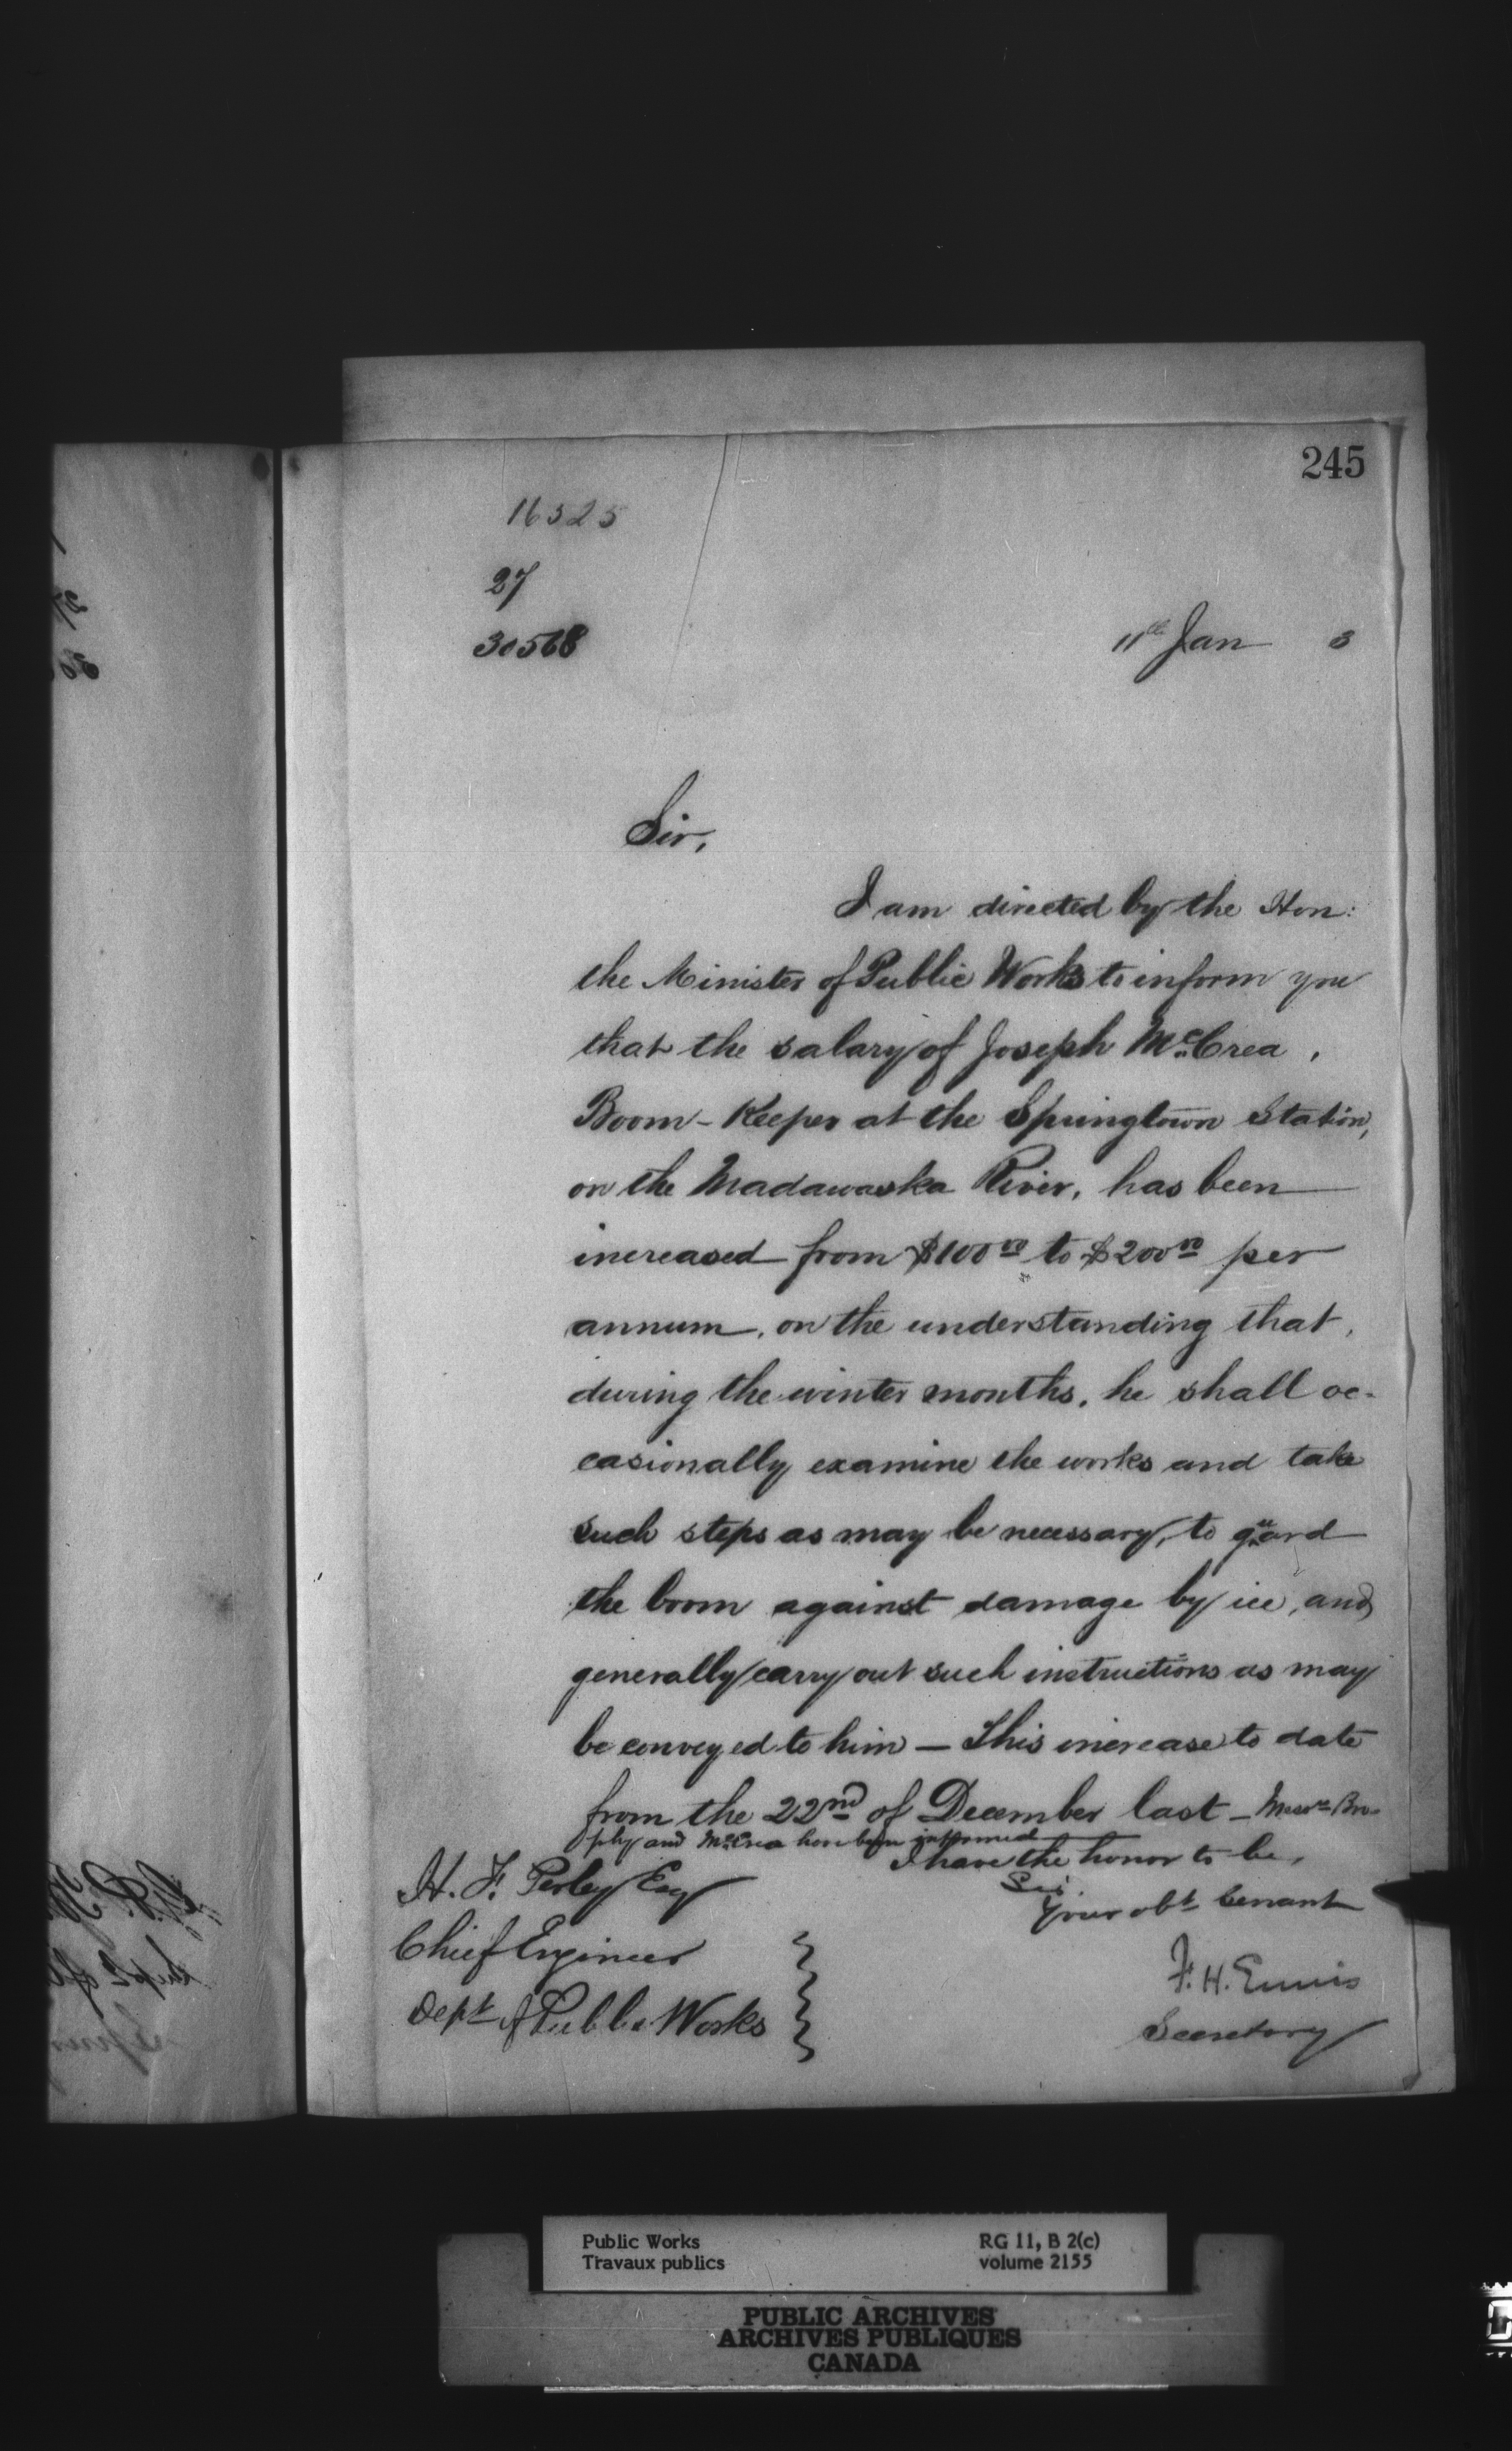 245
16325
27
30568
11th Jan 3
Sir,
I am directed by the Hon:
the Minister of Public Works to inform you
that the salary of Joseph McCrea,
Boom-Keeper at the Springtown Station,
on the Madawaska River, has been
increased from $100.00 to $200.00 per
annum, on the understanding that,
during the winter months, he shall oc-
casionally examine the works and take
such steps as may be necessary, to guard
the boom against damage by ice, and
generally carry out such instructions as may
be conveyed to him — This increase to date
from the 22nd of December last — Messrs Bro-
phy and McCrea have been informed
I have the honor to be,
Sir
Your obt servant
H. F. Perley Esq
Chief Engineer
Dept of Public Works
F. H. Ennis
Secretary
Public Works
Travaux publics
RG 11, B 2(c)
volume 2155
PUBLIC ARCHIVES
ARCHIVES PUBLIQUES
CANADA